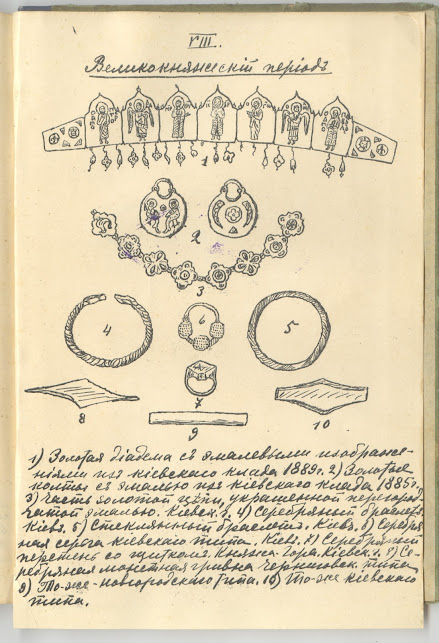 VIII.
Великокняжескій періодъ
1
2
3
4
6
5
7
8
9
10
1) Золотая діадема съ эмалевыми изображе-
ніями изъ кіевскаго клада 1889г. 2) Золотые
колты съ эмалью изъ кіевскаго клада 1885г.
3) Часть золотой цѣпи, украшенной перегород-
чатой эмалью. Кіевск. г. 4) Серебряный браслетъ.
Кіевъ. 5) Стеклянный браслетъ. Кіевъ. 6) Серебря-
ная серьга кіевскаго типа. Кіевъ. 7) Серебряный
перстень со щиткомъ. Княжа-Гора. Кіевск. г. 8) Се-
ребряная монетная гривна черниговск. типа
9) То-же-новгородскаго типа. 10) То-же кіевскаго
типа.